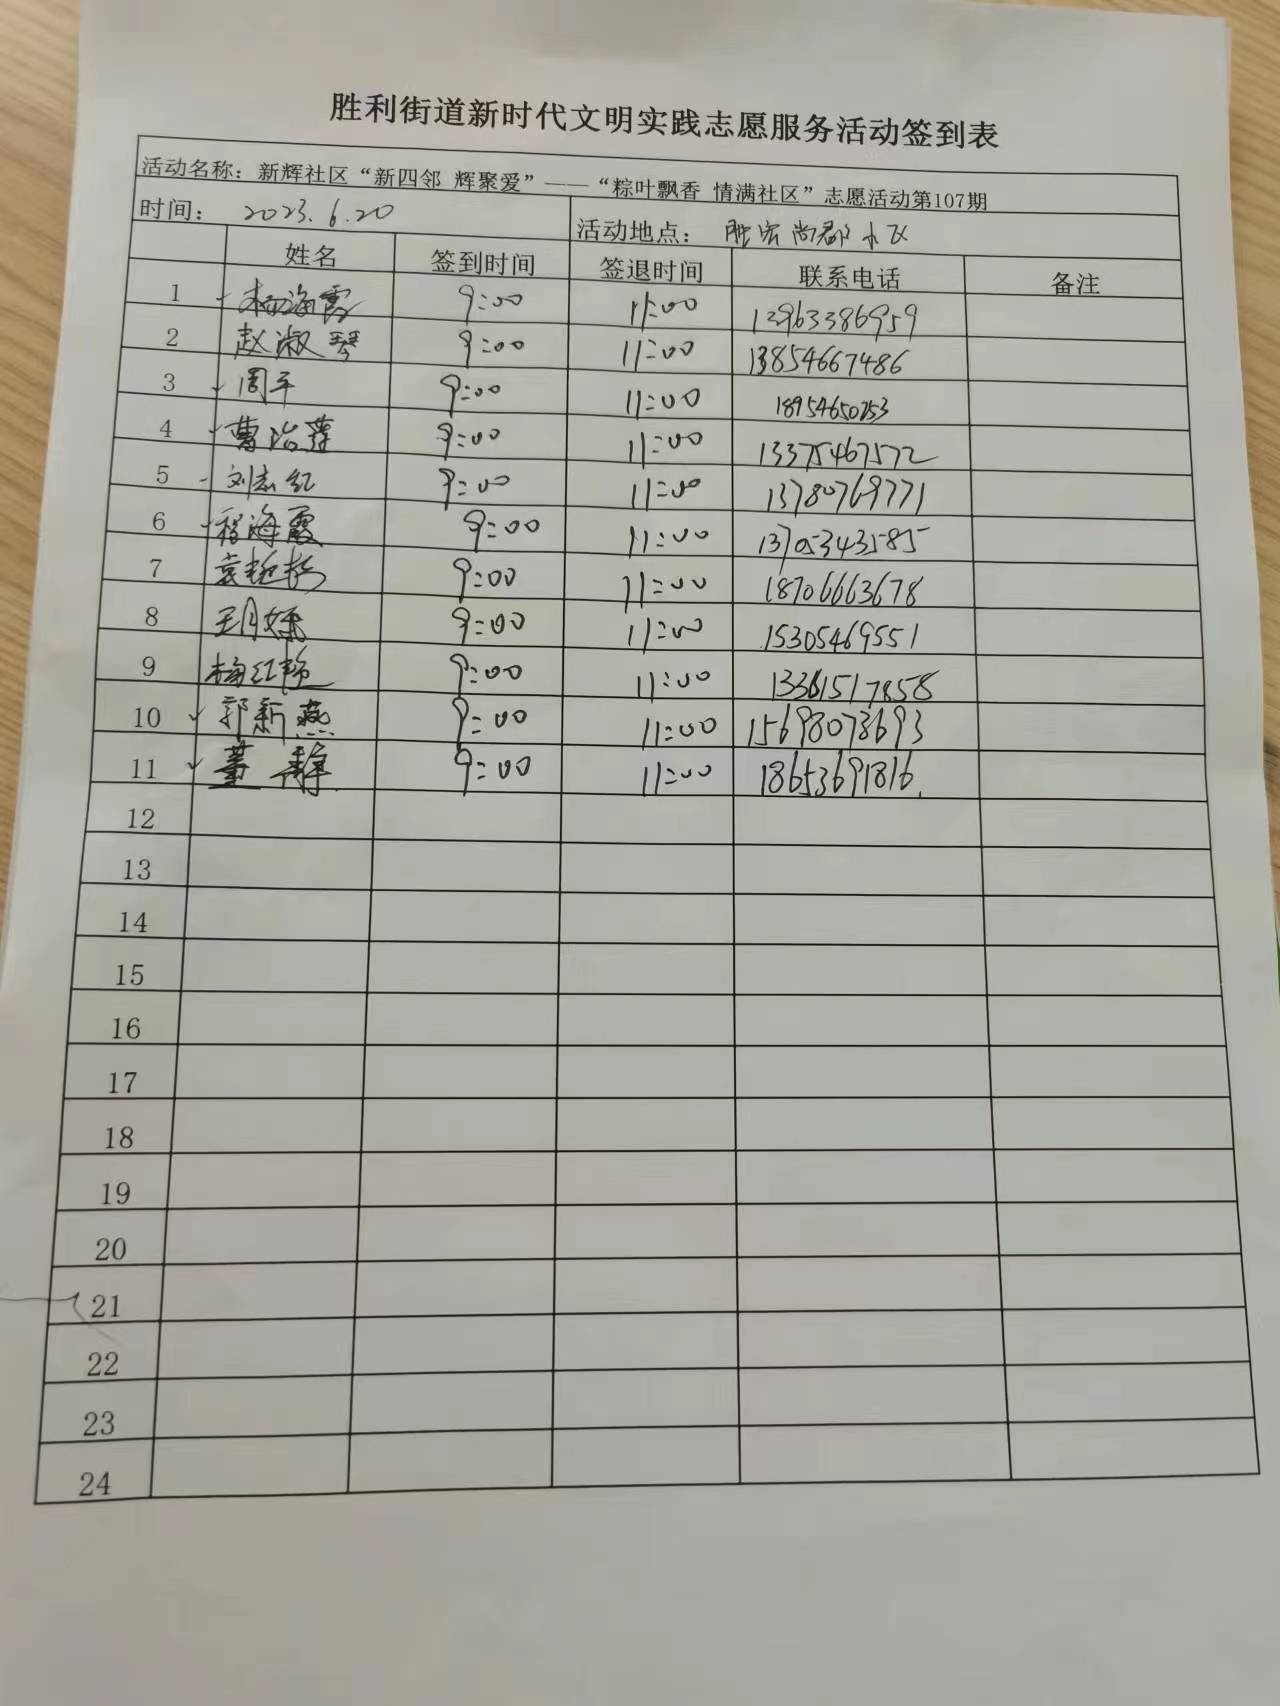 胜利街道新时代文明实践志愿服务活动签到表
活动名称：新辉社区“新四邻 辉聚爱”——“粽叶飘香 情满社区”志愿活动第107期
时间： 2023.6.20 活动地点： 胜宏尚郡小区
姓名 签到时间 签退时间 联系电话 备注
1 杨海霞 9:00 11:00 12963386959
2 赵淑琴 9:00 11:00 13854667486
3 周平 9:00 11:00 18954650253
4 曹治莲 9:00 11:00 13375467572
5 刘志红 9:00 11:00 13780769771
6 程海霞 9:00 11:00 13705343585
7 袁艳 9:00 11:00 18706663678
8 王月 9:00 11:00 15305469551
9 梅红艳 9:00 11:00 13361517858
10 郭新燕 9:00 11:00 15698073693
11 董静 9:00 11:00 18653691816.
12
13
14
15
16
17
18
19
20
21
22
23
24